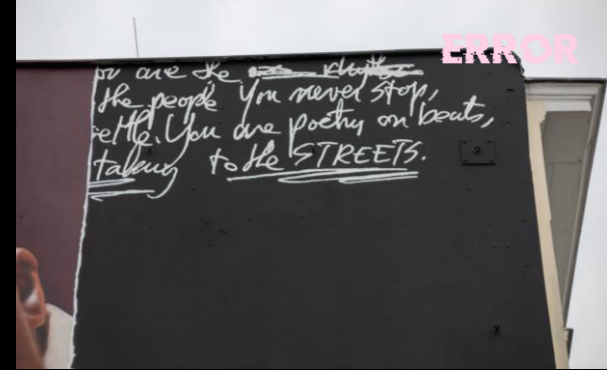 ERROR
are the
the people you never stop,
You are poetry on beats,
taking to the STREETS.
8